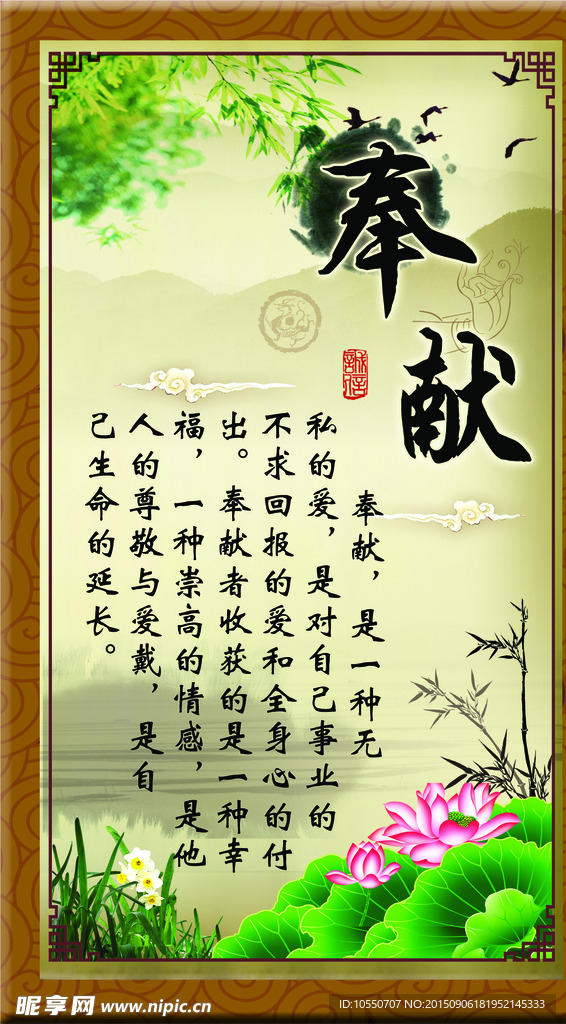 奉献
誠信
奉献，是一种无
私的爱，是对自己事业的
不求回报的爱和全身心的付
出。奉献者收获的是一种幸
福，一种崇高的情感，是他
人的尊敬与爱戴，是自
己生命的延长。
昵享网 www.nipic.cn
ID:10550707 NO:20150906181952145333